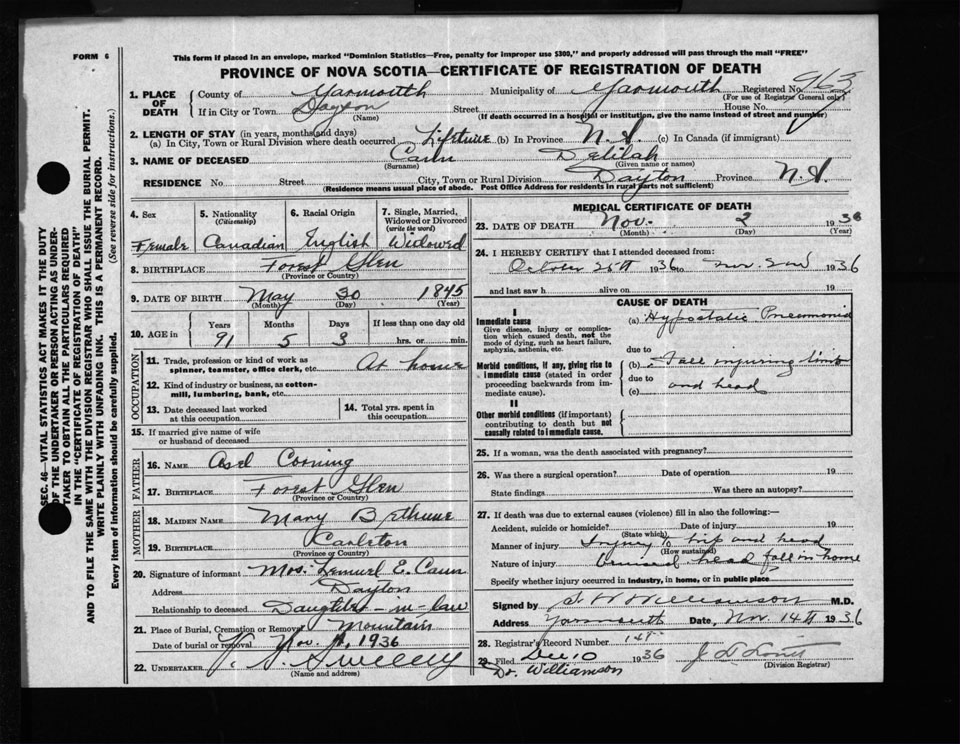 FORM 6
This form if placed in an envelope, marked "Dominion Statistics—Free, penalty for improper use $300," and properly addressed will pass through the mail "FREE"
PROVINCE OF NOVA SCOTIA—CERTIFICATE OF REGISTRATION OF DEATH
SEC. 46—VITAL STATISTICS ACT MAKES IT THE DUTY
OF THE UNDERTAKER OR PERSON ACTING AS UNDER-
TAKER TO OBTAIN ALL THE PARTICULARS REQUIRED
IN THE "CERTIFICATE OF REGISTRATION OF DEATH"
AND TO FILE THE SAME WITH THE DIVISION REGISTRAR WHO SHALL ISSUE THE BURIAL PERMIT.
WRITE PLAINLY WITH UNFADING INK. THIS IS A PERMANENT RECORD.
Every item of information should be carefully supplied. (See reverse side for instructions.)
1. PLACE OF DEATH
County of Yarmouth Municipality of Yarmouth Registered No. 963
(For use of Registrar General only)
If in City or Town Dayton Street House No.
(Name) (If death occurred in a hospital or institution, give the name instead of street and number)
2. LENGTH OF STAY (in years, months and days)
(a) In City, Town or Rural Division where death occurred Lifetime (b) In Province N.S. (c) In Canada (if immigrant)
3. NAME OF DECEASED Cann Delilah
(Surname) (Given name or names)
RESIDENCE No Street City, Town or Rural Division Dayton Province N.S.
(Residence means usual place of abode. Post Office Address for residents in rural parts not sufficient)
4. Sex 5. Nationality (Citizenship) 6. Racial Origin 7. Single, Married, Widowed or Divorced (write the word)
Female Canadian English Widowed
8. BIRTHPLACE Forest Glen
(Province or Country)
9. DATE OF BIRTH May 30 1845
(Month) (Day) (Year)
10. AGE in Years Months Days If less than one day old
91 5 3 hrs. or min.
OCCUPATION
11. Trade, profession or kind of work as
spinner, teamster, office clerk, etc. At home
12. Kind of industry or business, as cotton-
mill, lumbering, bank, etc.
13. Date deceased last worked
at this occupation
14. Total yrs. spent in
this occupation
15. If married give name of wife
or husband of deceased
FATHER
16. NAME Asel Corning
17. BIRTHPLACE Forest Glen
(Province or Country)
MOTHER
18. MAIDEN NAME Mary Bethune
19. BIRTHPLACE Carleton
(Province or Country)
20. Signature of informant Mrs. Lemuel E. Cann
Address Dayton
Relationship to deceased Daughter-in-law
21. Place of Burial, Cremation or Removal Mountain
Date of burial or removal Nov. 1936
22. UNDERTAKER Sweeny
(Name and address)
MEDICAL CERTIFICATE OF DEATH
23. DATE OF DEATH Nov. 2 1936
(Month) (Day) (Year)
24. I HEREBY CERTIFY that I attended deceased from:
October 25th 1936 to Nov. 2nd 1936
and last saw h alive on 19
CAUSE OF DEATH
I
Immediate cause
Give disease, injury or complica-
tion which caused death, not the
mode of dying, such as heart failure,
asphyxia, asthenia, etc.
(a) Hypostatic Pneumonia
due to
Morbid conditions, if any, giving rise to
immediate cause (stated in order
proceeding backwards from im-
mediate cause).
(b) Fall injuring limb
due to
(c) and head
II
Other morbid conditions (if important)
contributing to death but not
causally related to immediate cause.
25. If a woman, was the death associated with pregnancy?
26. Was there a surgical operation? Date of operation 19
State findings Was there an autopsy?
27. If death was due to external causes (violence) fill in also the following:—
Accident, suicide or homicide? Date of injury 19
(State which)
Manner of injury Injury to hip and head
(How sustained)
Nature of injury bruised head fall in home
Specify whether injury occurred in industry, in home, or in public place
Signed by Williamson M.D.
Address Yarmouth Date, Nov 14th 1936
28. Registrar's Record Number
29. Filed Dec 10 1936
(Division Registrar)
Dr. Williamson